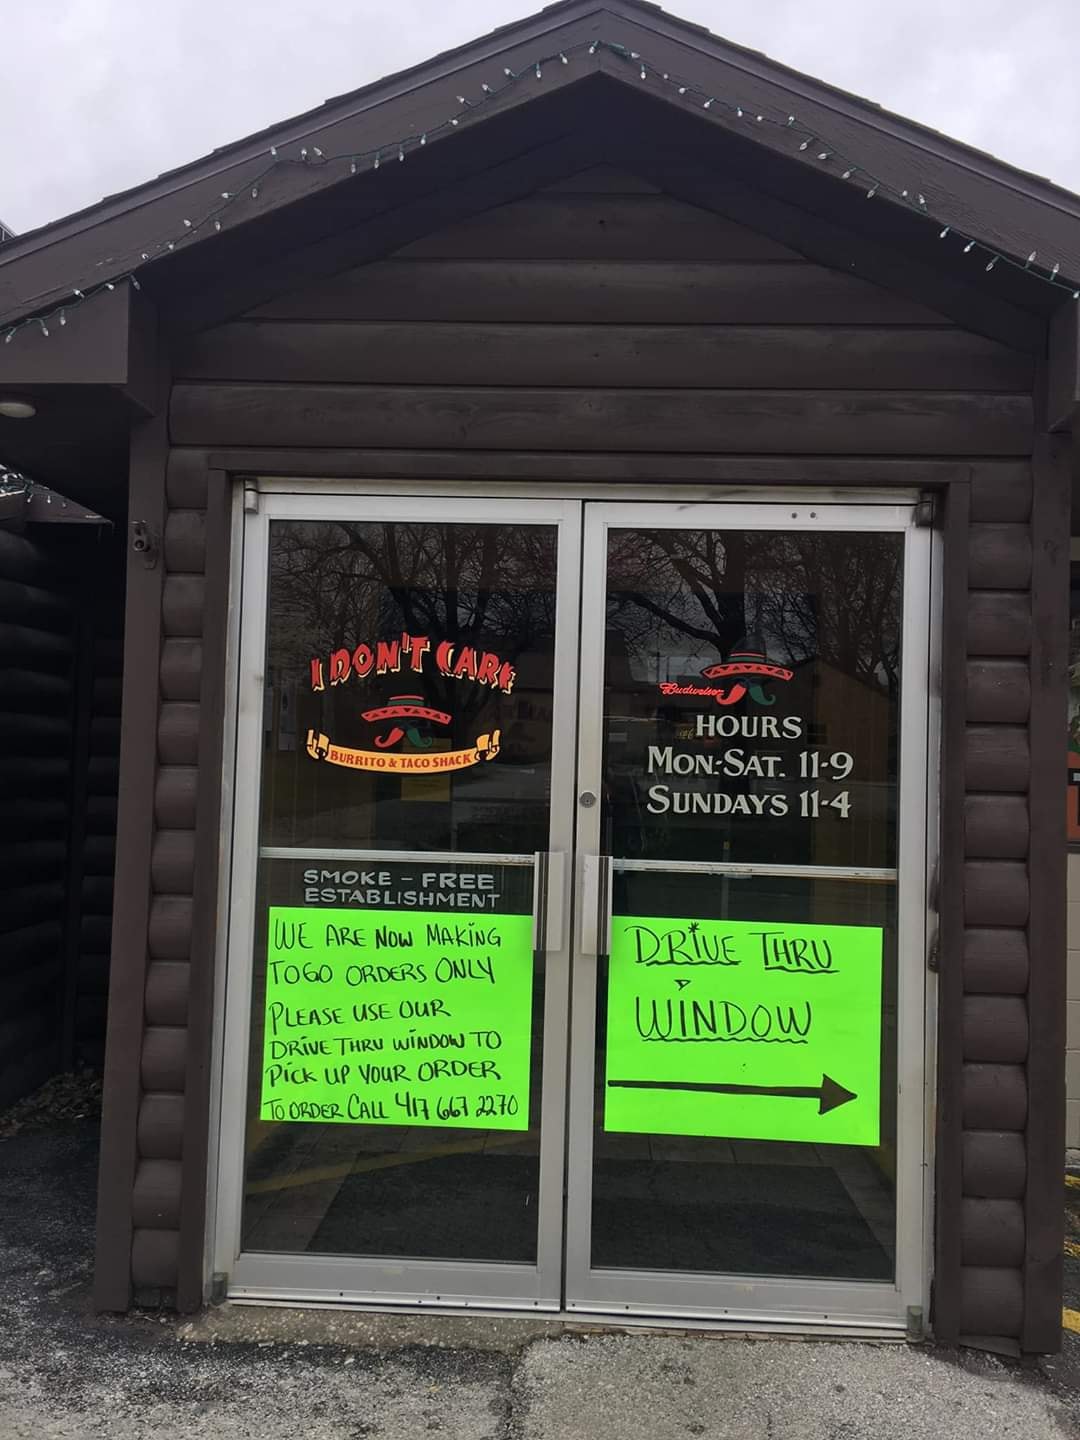 I DON'T CARE
BURRITO & TACO SHACK
SMOKE - FREE
ESTABLISHMENT
WE ARE NOW MAKING
TO GO ORDERS ONLY
PLEASE USE OUR
DRIVE THRU WINDOW TO
PICK UP YOUR ORDER
TO ORDER CALL 417 667 2270
Budweiser
HOURS
MON.-SAT. 11-9
SUNDAYS 11-4
DRIVE THRU
WINDOW